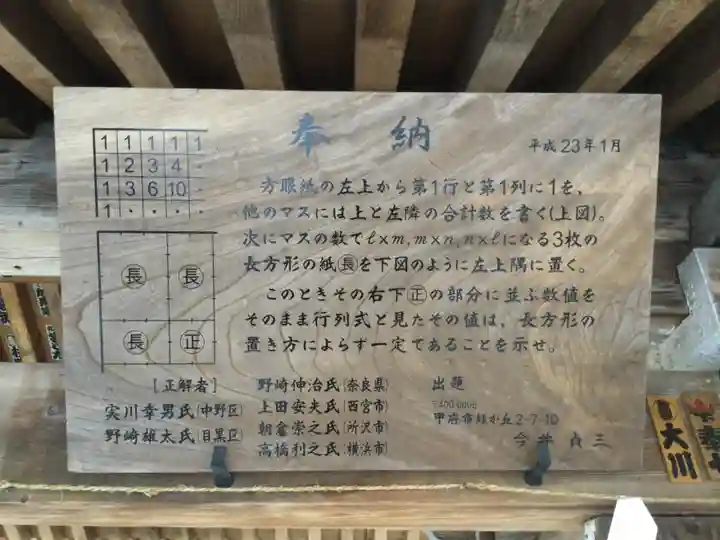 奉納
平成23年1月
1 1 1 1 1
1 2 3 4 ·
1 3 6 10 ·
1 · · · ·
方眼紙の左上から第1行と第1列に1を、
他のマスには上と左隣の合計数を書く(上図)。
次にマスの数でℓ×m, m×n, n×ℓになる3枚の
長方形の紙㊑を下図のように左上隅に置く。
このときその右下㊣の部分に並ぶ数値を
そのまま行列式と見たその値は、長方形の
置き方によらず一定であることを示せ。
長 長
長 正
[正解者]
実川幸男氏(中野区)
野崎雄太氏(目黒区)
野崎伸治氏(奈良県)
上田安夫氏(西宮市)
朝倉崇之氏(所沢市)
高橋利之氏(横浜市)
出題
甲府市緑が丘2-7-10
今井貞三
大川